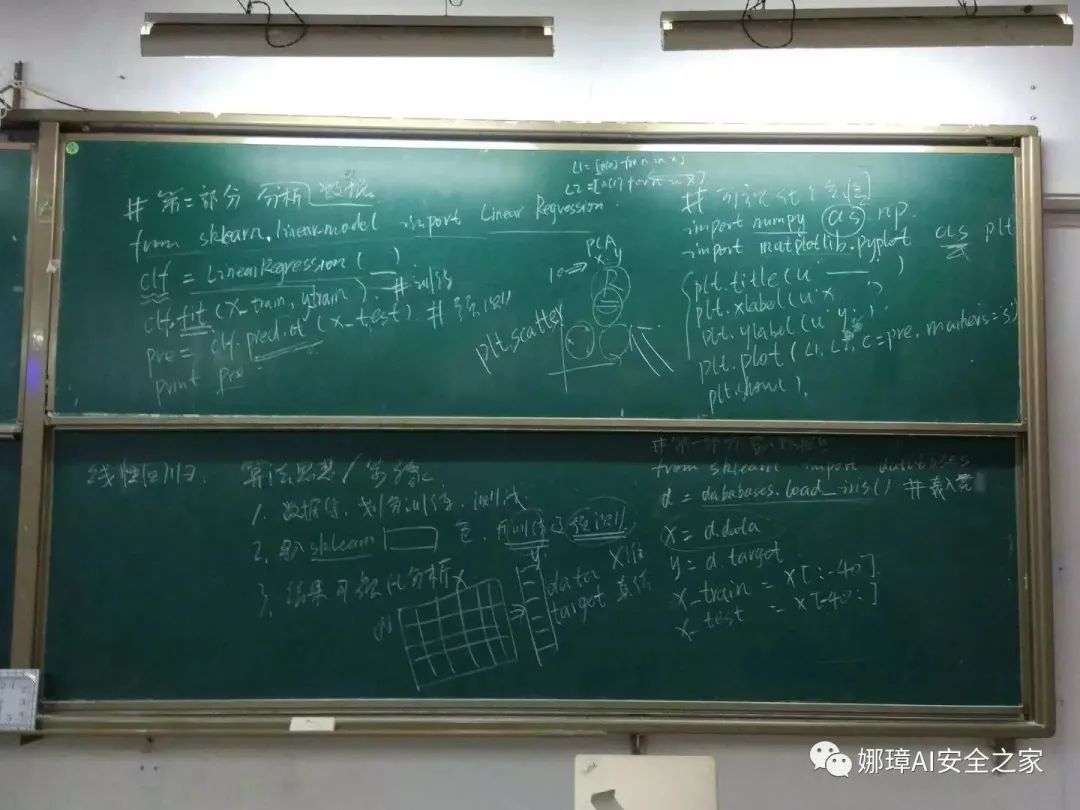 # 第二部分 分析 数据
from sklearn.linearmodel import Linear Regression
clf = LinearRegression(__)
clf.fit(x_train, ytrain) # 训练
pre = clf.predict(x_test) # 预测
print pre
L1=[n[0] for n in x]
L2=[n[1] for n in x]
PCA
x y
10
plt.scatter
import numpy as np
import matplotlib.pyplot as plt
plt.title(u'____')
plt.xlabel(u'x')
plt.ylabel(u'y')
plt.plot(L1, L2, c=pre, markers=s)
plt.show()
线性回归. 算法思想/步骤:
1. 数据集, 划分训练, 测试
2. sklearn 包, 训练 预测
3. 结果可视化分析
x
y
data x
target
# 第一部分
from sklearn import databases
d = dababases.load_iris() # 载入
x = d.data
y = d.target
x_train = x[:-40]
x_test = x[-40:]
娜璋AI安全之家